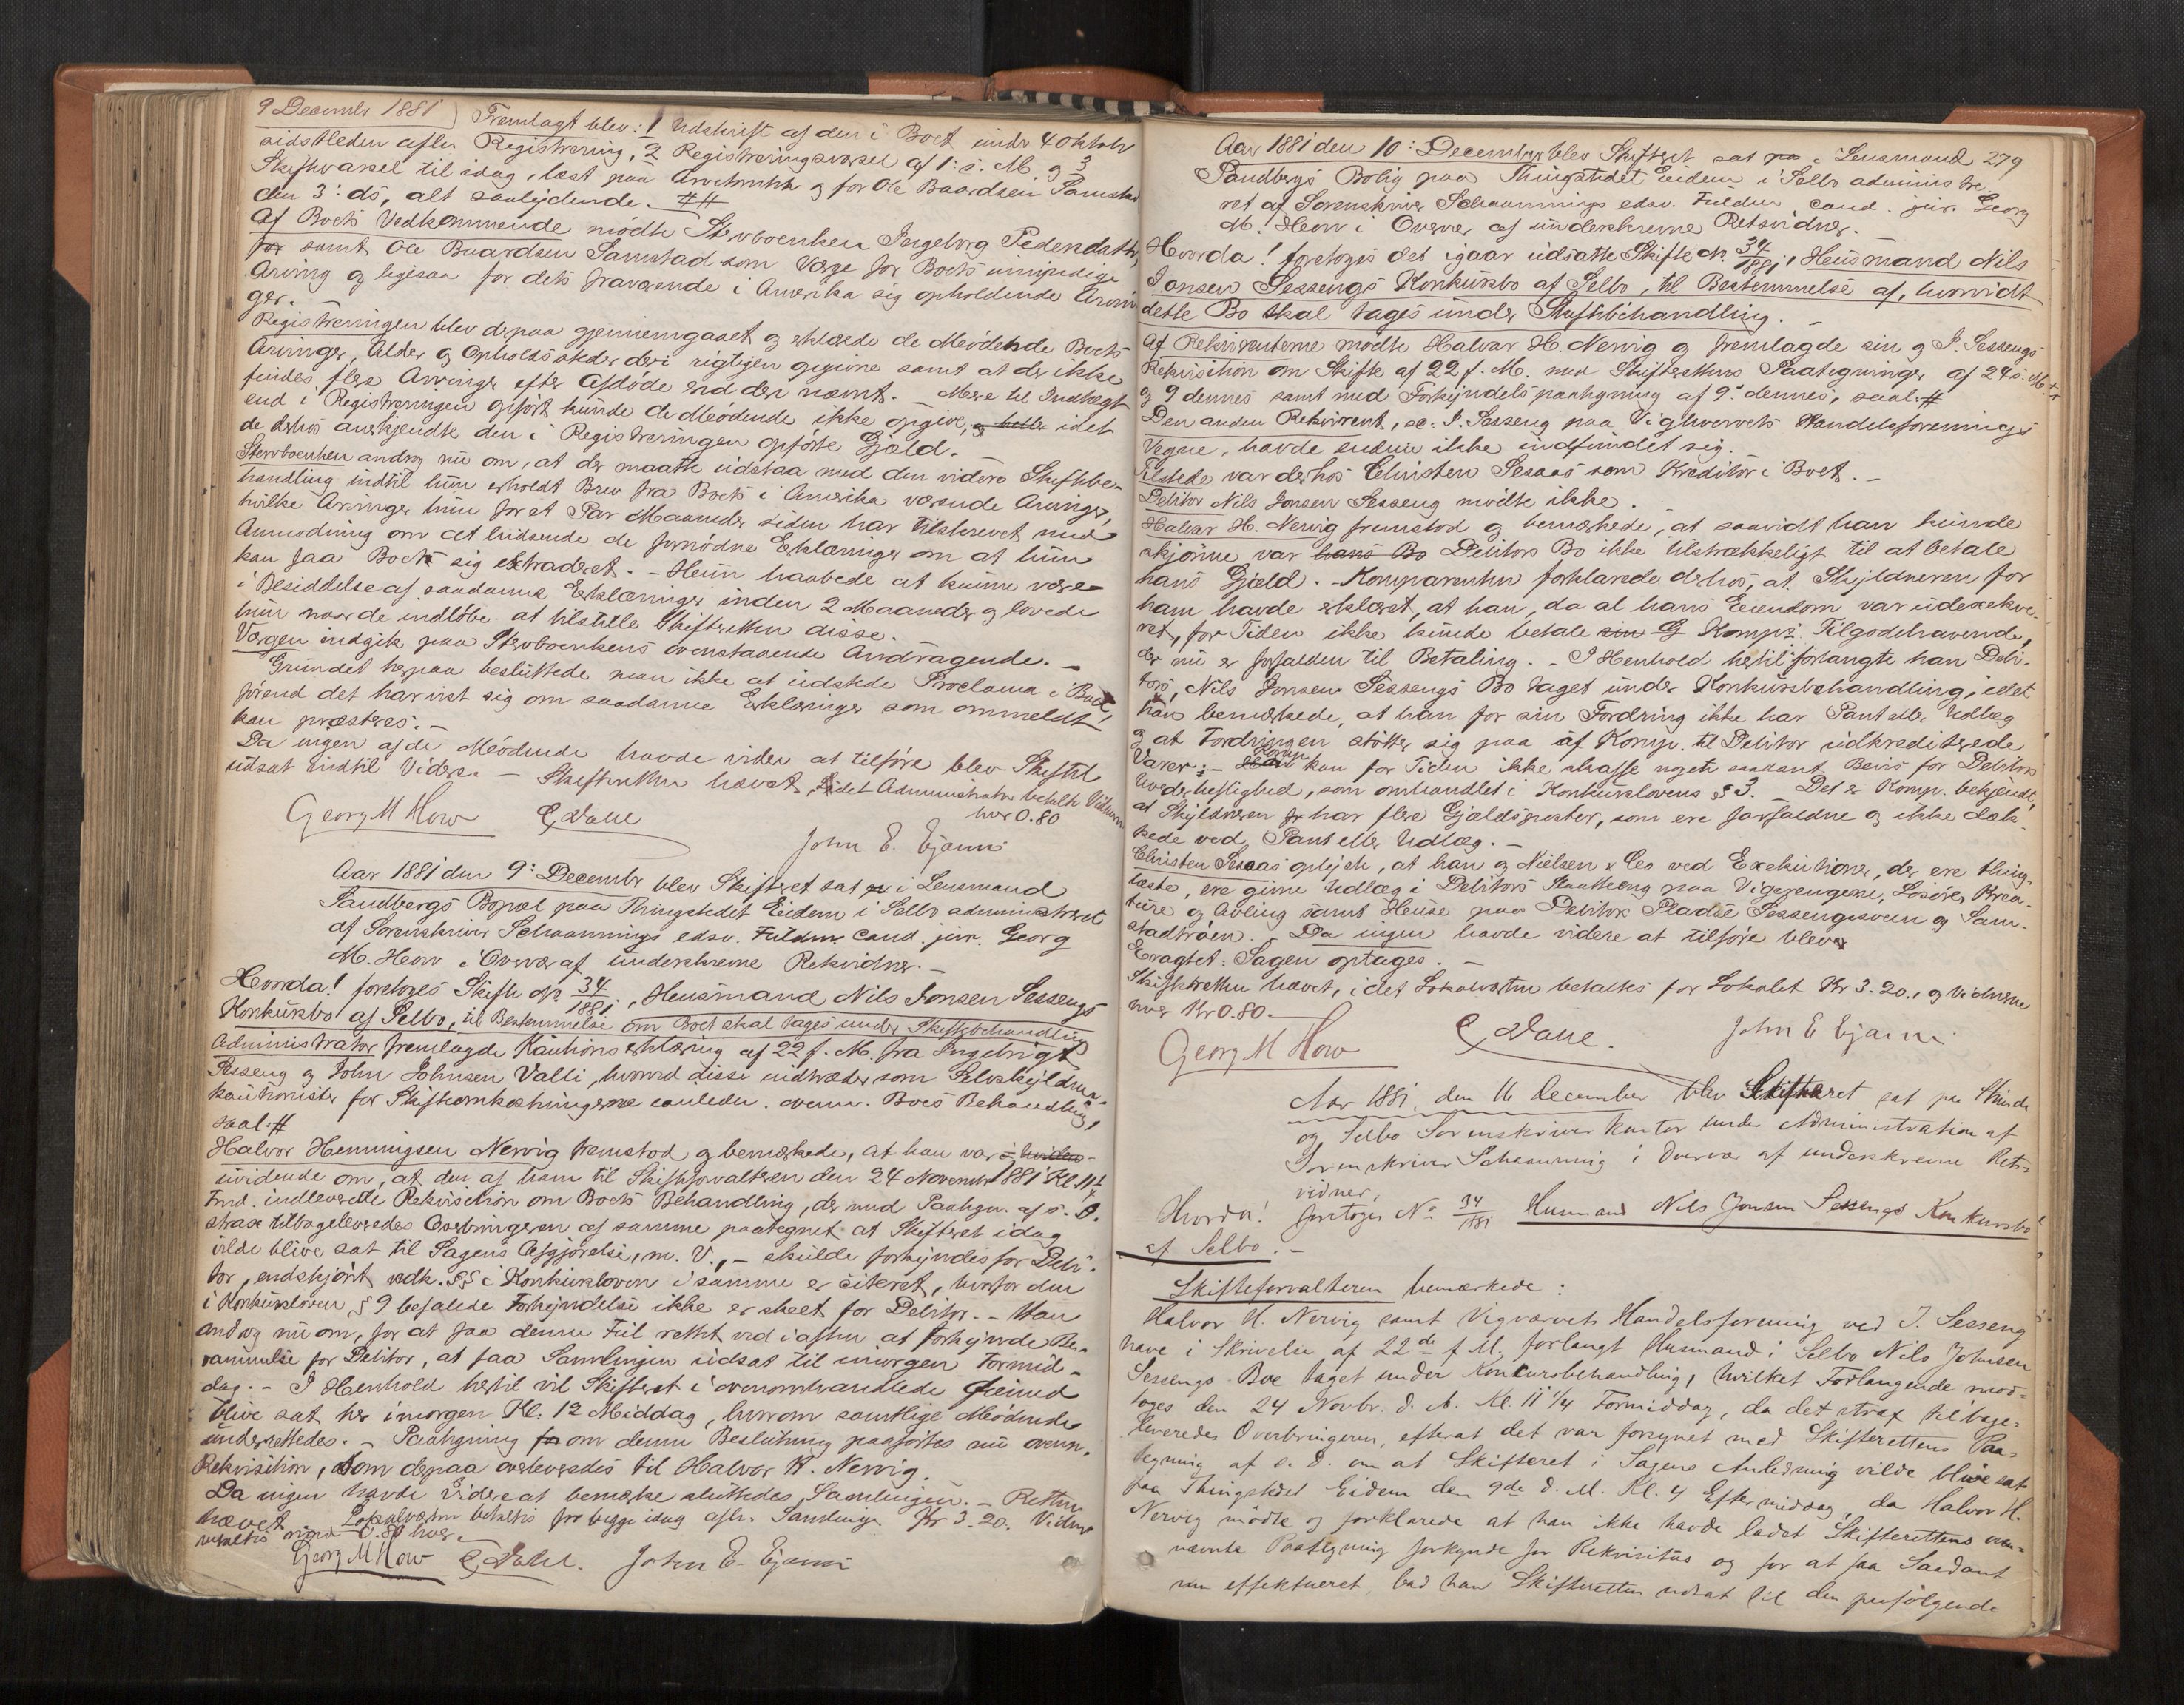 9 December 1881) Fremlagt blev: 1 Udskrift af den i Boet under 4 Oktober
sidstleden afhn Registrering, 2 Registreringsvarsel af 1: s. M. og 3
Skiftevarsel til idag, læst paa Arvetomten og for Ole Baardsen Samstad
den 3: ds, alt saalydende. ##
Af Boets Vedkommende mødte Stervboenken Ingeborg Pedersdatter,
for samt Ole Baardsen Samstad som Værge for Boets umyndige
Arving og ligesaa for dets fraværende i Amerika sig opholdende Arvin-
ger. -
Registreringen blev derpaa gjennemgaaet og erklærede de Mødende Boets
Arvinger, Alder og Opholdssteder deri rigtigen opgivne samt at der ikke
findes flere Arvinger efter Afdøde end der nævnt. - Mere til Indtægt
end i Registreringen opført kunde de Mødende ikke opgive, og heller idet
de derhos anerkjendte den i Registreringen opførte Gjæld. -
Stervboenken androg nu om, at der maatte udstaa med den videre Skiftebe-
handling indtil hun erholdt Brev fra Boets i Amerika værende Arvinger,
hvilke Arvinger hun for et Par Maaneder siden har tilskrevet med
Anmodning om at tilsende de fornødne Erklæringer om at hun
kan faa Boet sig extraderet. - Hun haabede at kunne være
i Besiddelse af saadanne Erklæringer inden 2 Maaneder og lovede
hun naar de indløbe at tilstille Skifteretten disse.
Værgen indgik paa Stervboenkens ovenstaaende Andragende. -
Grundet herpaa besluttede man ikke at udstede Proclama i Boet,
førend det har vist sig om saadanne Erklæringer som ommeldt
kan præsteres. -
Da ingen af de Mødende havde videre at tilføre blev Skiftet
udsat indtil Videre. - Skifteretten hævet, idet Administrator betalte Vidnerne
hver 0.80
Georg M How E Dalle
John E. Ejanni
Aar 1881 den 9: Decembr blev Skifteret sat paa i Lensmand
Sandbergs Bopæl paa Thingstedet Eidem i Selbo administreret
af Sorenskriver Schaannings edsv. Fuldm. Cand. jur. Georg
M. How i Overvær af underskrevne Retsvidner. -
Hvorda! foretoges Skifte No 34/1881, Husmand Nils Jonsen Sessengs
Konkursbo af Selbo, til Bestemmelse om Boet skal tages under Skiftebehandling
Administrator fremlagde Kautionserklæring af 22 f. M. fra Ingebrigt
Sesseng og John Johnsen Valli, hvorved disse indtræder som Selvskyldner-
kautionister for Skifteomkostningerne anleden. ovenn. Boes Behandling,
saal. #
Halvor Henningsen Nervig fremstod og bemærkede, at han var i hviden-
uvidende om, at den af ham til Skifteforvalteren den 24 November 1881 Kl. 11 1/4
Fmd. indleverede Rekvisition om Boets Behandling, der med Paategn. af s. D.
strax tilbageleveredes Overbringeren af samme paategnet at Skifteret idag
vilde blive sat til Sagens Afgjørelse, m. V., - skulde forkyndes for Debi-
tor, endskjønt vedk. §§ i Konkursloven i samme er citeret, hvorfor den
i Konkursloven § 9 befalede Forkyndelse ikke er skeet for Debitor. - Han
androg nu om, for at faa denne Feil rettet ved iaften at forkynde Be-
rammelse for Debitor, at faa Samlingen udsat til imorgen Formid-
dag. - I Henhold hertil vil Skifteret i ovenomhandlede Øiemed
blive sat her imorgen Kl: 12 Middag, hvorom samtlige Mødende
underrettedes. - Paategning for om denne Beslutning paaførtes nu ovenn.
Rekvisition, som derpaa overleveredes til Halvor H. Nervig.
Da ingen havde Videre at bemærke sluttedes Samlingen. - Retten
hævet. Lokalværten betaltes for begge idag afh. Samlinger Kr 3.20. Vidnerne
betaltes 0.80 hver.
Georg M How E Dalle. John E. Ejanni
Aar 1881 den 10: December blev Skifteret sat paa i Lensmand 279
Sandbergs Bolig paa Thingstedet Eidem i Selbo administre-
ret af Sorenskriver Schaannings edsv. Fuldm. cand. jur. Georg
M. How i Overvær af underskrevne Retsvidner.
Hvorda! foretoges det igaar udsatte Skifte No 34/1881, Husmand Nils
Jonsen Sessengs Konkursbo af Selbo, til Bestemmelse af, hvorvidt
dette Bo skal tages under Skiftebehandling. -
Af Rekvirenterne mødte Halvor H. Nervig og fremlagde sin og I. Sessengs
Rekvisition om Skifte af 22 f. M. med Skifterettens Paategninger af 24 s. M.
og 9 dennes samt med Forkyndelspaategning af 9: dennes, saal. #
Den anden Rekvirent, sc. I. Sesseng paa Vighvervets Handelsforenings
Vegne, havde endnu ikke indfundet sig.
Tilstede var derhos Christen Sesaas som Kreditor i Boet. -
Debitor Nils Jonsen Sesseng mødte ikke.
Halvor H. Nervig fremstod og bemærkede, at saavidt han kunde
skjønne var hans Bo Debitors Bo ikke tilstrækkeligt til at betale
hans Gjæld. - Komparenten forklarede derhos, at Skyldneren for
ham havde erklæret, at han, da al hans Eiendom var udexekve-
ret, for Tiden ikke kunde betale sin G Komps. Tilgodehavende,
der nu er forfalden til Betaling. - I Henhold hertil forlangte han Debi-
tors, Nils Jonsen Sessengs Bo taget under Konkursbehandling, idet
han bemærkede, at han for sin Fordring ikke har Pant eller Udlæg
og at Fordringen støtter sig paa af Komp. til Debitor udkrediterede
Varer; - Han Komp. kan for Tiden ikke skaffe noget saadant Bevis for Debitors
Uvederheftighed, som omhandlet i Konkurslovens § 3. - Det er Komp. bekjendt,
at Skyldneren har flere Gjældsposter, som ere forfaldne og ikke dæk-
kede ved Pant eller Udlæg. -
Christen Sesaas oplyste, at han og Nielsen & Co ved Exekutioner, der ere thing-
læste, ere givne Udlæg i Debitors Slaatteeng paa Vigerengene, Løsøre, Krea-
ture og Avling samt Huse paa Debitors Pladse Sessengsveen og Sam-
stadtrøen. - Da ingen havde videre at tilføre blev
Eragtet: Sagen optages. -
Skifteretten hævet, idet Lokalværten betaltes for Lokalet Kr 3.20., og Vidnerne
hver Kr 0.80. -
Georg M How E Dalle. John E Ejanni
Aar 1881, den 16 December blev Skifteret sat paa Strinde
og Selbo Sorenskriver kontor under Administration af
Sorenskriver Schaanning i Overvær af underskrevne Rets-
vidner,
Hvorda! foretoges No 34/1881 Husmand Nils Jonsen Sessengs Konkursbo
af Selbo. -
Skifteforvalteren bemærkede:
Halvor H. Nervig samt Vigvarvets Handelsforening ved I. Sesseng
have i Skrivelse af 22de f. M. forlangt Husmand i Selbo Nils Johnsen
Sessengs Boe taget under Konkursbehandling, hvilket Forlangende mod-
toges den 24 Novbr. d. A. Kl. 11 1/4 Formiddag, da det strax tilbage-
leveredes Overbringeren, efterat det var forsynet med Skifterettens Paa-
tegning af s. D. om at Skifteret i Sagens Anledning vilde blive sat
paa Thingstedet Eidem den 9de d. M. Kl. 4 Eftermiddag, da Halvor H.
Nervig mødte og forklarede at han ikke havde ladet Skifterettens om-
nævnte Paategning forkynde for Rekvisitus og for at faa Saadant
nu effektueret, bad han Skifteretten udsat til den paafølgende